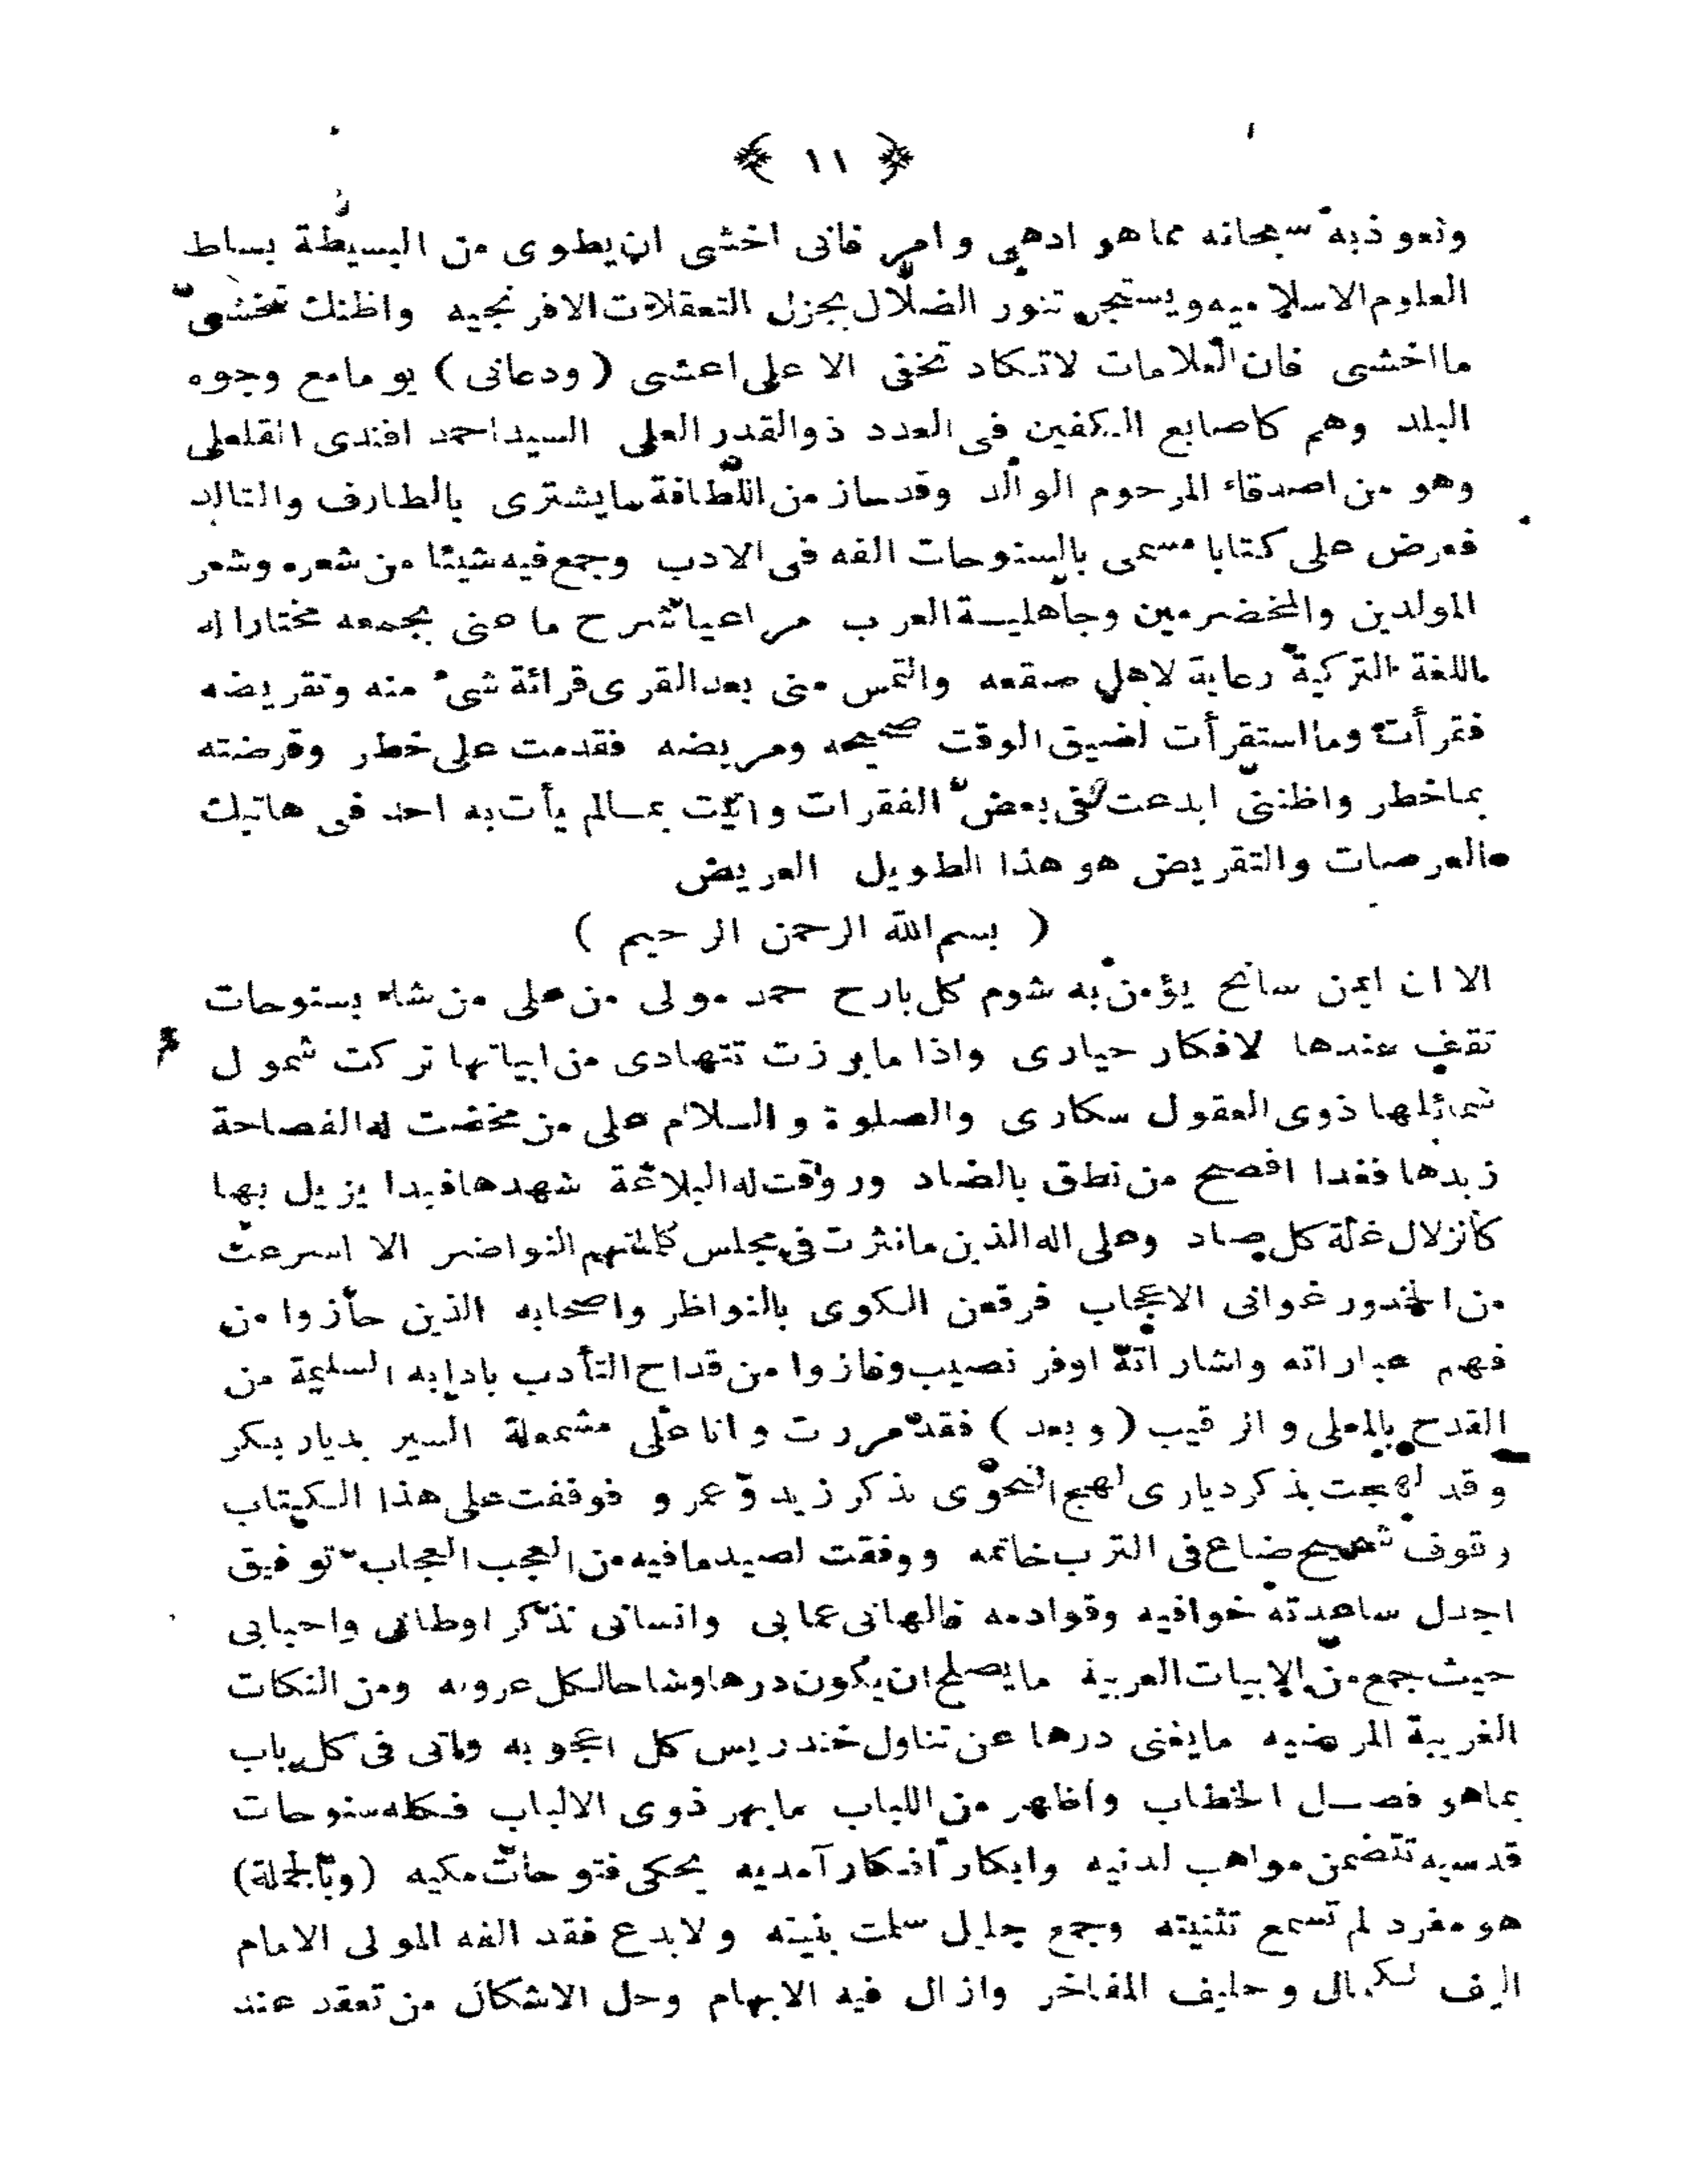 ﴿ ١١ ﴾
ونعوذبه سبحانه مما هو ادهى وامر فانى اخشى ان يطوى من البسيطة بساط
العلوم الاسلاميه ويستجر تنور الضلال بجزل التعقلات الافرنجيه واظنك تخشى
ما اخشى فان العلامات لاتكاد تخفى الا على اعشى ( ودعانى ) يوما مع وجوه
البلد وهم كاصابع الكفين فى العدد ذوالقدر العلى السيد احمد افندى القلعلى
وهو من اصدقاء المرحوم الوالد وقد ساز من اللطافة مايشترى بالطارف والتالد
فعرض على كتابا مسمى بالسنوحات الفه فى الادب وجمع فيه شيئا من شعره وشعر
المولدين والمخضرمين وجاهلية العرب مراعيا شرح ما عنى بجمعه مختارا له
باللغة التركية رعاية لاهل صقعه والتمس منى بعد القرى قرائة شىء منه وتقريضه
فقرأت وما استقرأت لضيق الوقت صحيحه ومريضه فقدمت على خطر وقرضته
بماخطر واظننى ابدعت فى بعض الفقرات واتيت بمالم يأت به احد فى هاتيك
العرصات والتقريض هو هذا الطويل العريض
( بسم الله الرحمن الرحيم )
الا ان ايمن سانح يؤمن به شوم كل بارح حمد مولى من على من شاء بسنوحات
تقف عندها لافكار حيارى واذا مابرزت تتهادى من ابياتها تركت شمول
شمائلها ذوى العقول سكارى والصلوة والسلام على من مخضت له الفصاحة
زبدها فغدا افصح من نطق بالضاد وروقت له البلاغة شهدها فبدا يزيل بها
كأنزلال غلة كل صاد وعلى اله الذين مانثرت فى مجلس كلمتهم النواضر الا اسرعت
من الخدور غوانى الاعجاب فرقعن الكوى بالنواظر واصحابه الذين حازوا من
فهم عباراته واشاراته اوفر نصيب وفازوا من قداح التأدب بادابه السليمة من
القدح بالمعلى والرقيب ( وبعد ) فقد مررت وانا على مشمعلة السير بديار بكر
وقد لهجت بذكر ديارى لهج النحوى بذكر زيد وعمرو فوقفت على هذا الكتاب
وقوف شحيح ضاع فى الترب خاتمه ووفقت لصيد مافيه من العجب العجاب توفيق
اجدل ساعدته خوافيه وقوادمه فالهانى عما بى وانسانى تذكر اوطانى واحبابى
حيث جمع من الابيات العربية مايصلح ان يكون درها وشاحا لكل عروبه ومن النكات
الغريبة المرضيه مايغنى درها عن تناول خندريس كل اعجوبه واتى فى كل باب
بماهو فصل الخطاب واظهر من اللباب مابهر ذوى الالباب فكله سنوحات
قدسيه تتضمن مواهب لدنيه وابكار افكار آمديه يحكى فتوحات مكيه (وبالجملة)
هو مفرد لم تسمع تثنيته وجمع جليل سلمت بنيته ولابدع فقد الفه المولى الامام
اليف الكمال وحليف المفاخر وازال فيه الابهام وحل الاشكال من تعقد عند